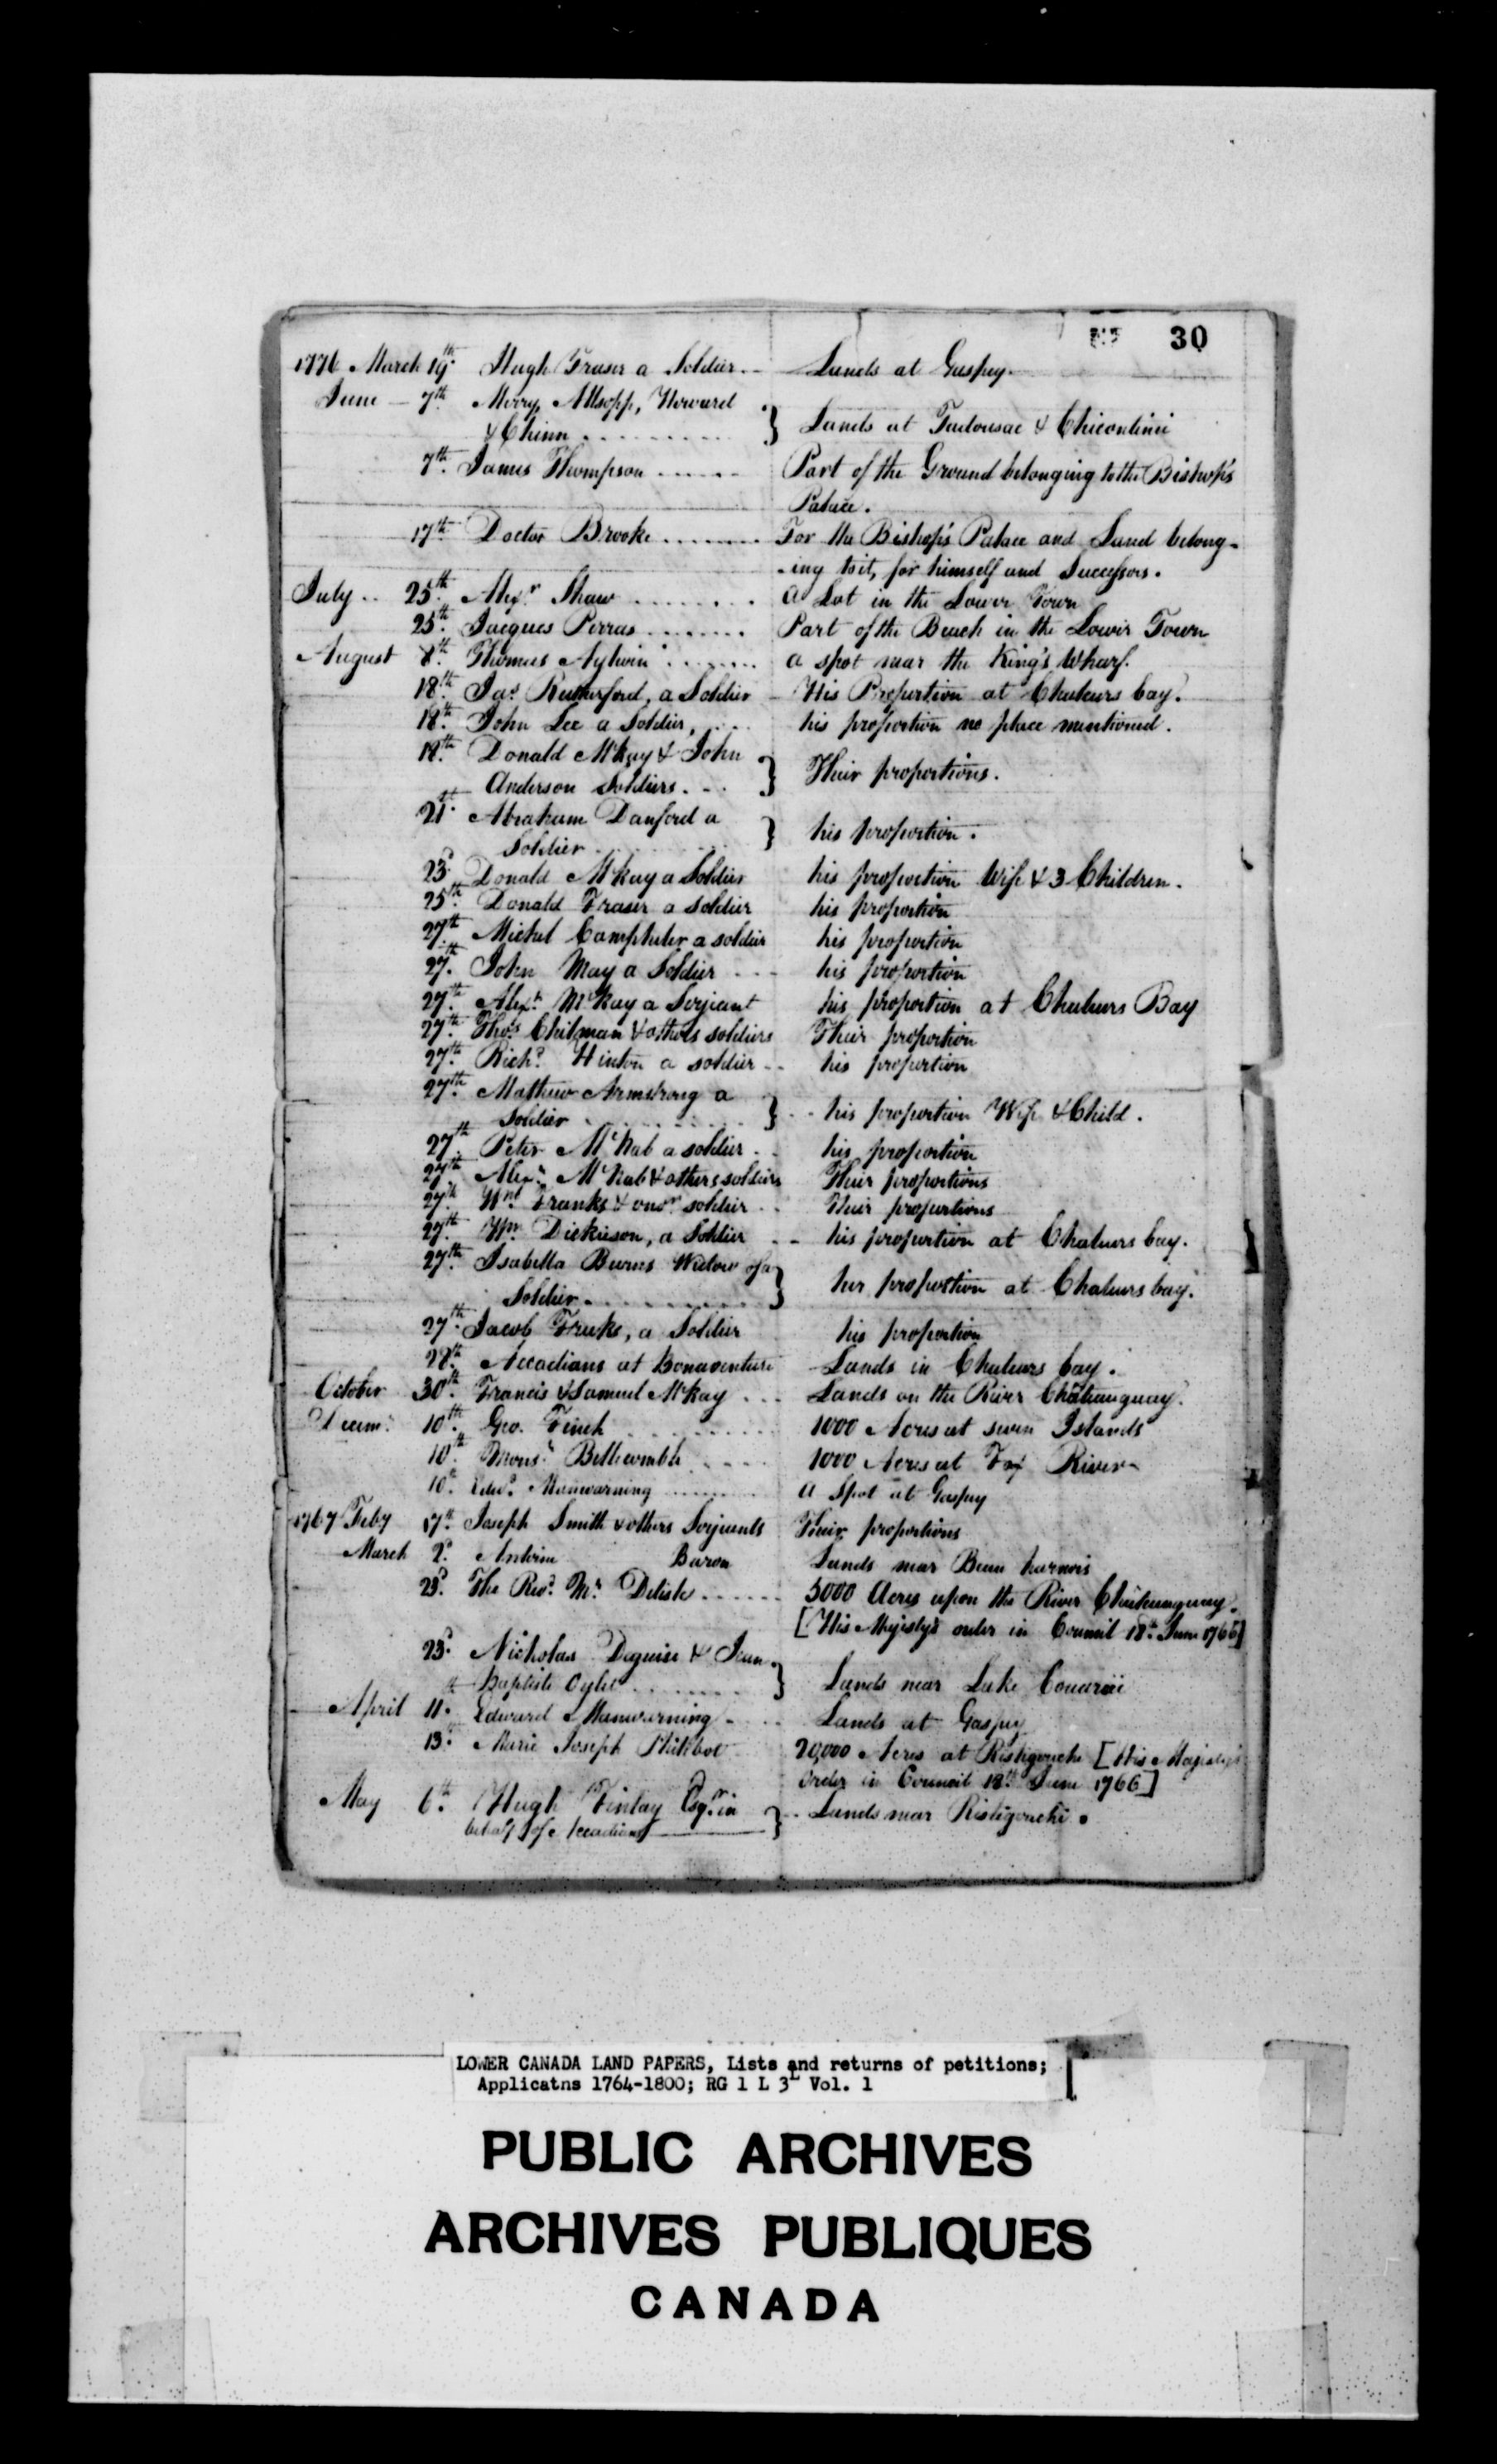 30
1776 March 19th. Hugh Fraser a Soldier. Lands at Gaspey.
June 7th. Merry, Allsopp, Howard
& Chinn } Lands at Tadousac & Chicontinie
7th. James Thompson Part of the Ground belonging to the Bishop's
Palace.
17th. Doctor Brooke For the Bishop's Palace and Land belong-
-ing to it, for himself and Successors.
July 25th. Alexr. Shaw A Lot in the Lower Town
25th. Jacques Perras Part of the Beach in the Lower Town
August 8th. Thomas Aylwin a spot near the King's Wharf.
18th. Jas. Rutherford, a Soldier His Proportion at Chaleurs bay.
18th. John Lee a Soldier, his proportion no place mentioned.
18th. Donald McKay & John
Anderson Soldiers. } Their proportions.
21st. Abraham Danford a
Soldier } his proportion.
23d. Donald McKay a Soldier his proportion Wife & 3 Children.
25th. Donald Fraser a Soldier his proportion
27th. Michel a soldier his proportion
27th. John May a Soldier his proportion
27th. Alexr. McKay a Serjeant his proportion at Chaleurs Bay
27th. Thos. Chilman & others soldiers Their proportion
27th. Richd. Hinton a soldier his proportion
27th. Mathew Armstrong a
Soldier } his proportion Wife & Child.
27th. Peter McNab a soldier his proportion
27th. Alexr. McNab & others soldiers Their proportions
27th. Wm. Franks & soldier Their proportions
27th. Wm. Dickieson, a Soldier his proportion at Chaleurs bay.
27th. Isabella Burns Widow of a
Soldier. } her proportion at Chaleurs bay.
27th. Jacob, a Soldier his proportion
28th. Accadians at Bonaventure Lands in Chaleurs bay.
October 30th. Francis & Samuel McKay Lands on the River Châteauguay.
Decemr. 10th. Geo. Finch 1000 Acres at seven Islands
10th. Monsr. Bellecombe 1000 Acres at Fox River
10th. Edwd. Manwarning A Spot at Gaspey
1767 Feby 17th. Joseph Smith & others Serjeants Their proportions
March 2d. Antoine Baron Lands near Beau harnois
23d. The Revd. Mr. Delisle 5000 Acres upon the River Châteauguay.
[His Majesty's order in Council 18th. June 1766]
23d. Nicholas Deguise & Jean
Baptiste } Lands near Lake
April 11th. Edward Manwarning Lands at Gaspey
13th. Marie Joseph Philibot 20,000 Acres at Ristigouche [His Majesty's
Order in Council 18th. June 1766]
May 6th. Hugh Finlay Esqr. in
behalf of Accadians } Lands near Ristigouche.
LOWER CANADA LAND PAPERS, Lists and returns of petitions;
Applicatns 1764-1800; RG 1 L 3L Vol. 1
PUBLIC ARCHIVES
ARCHIVES PUBLIQUES
CANADA